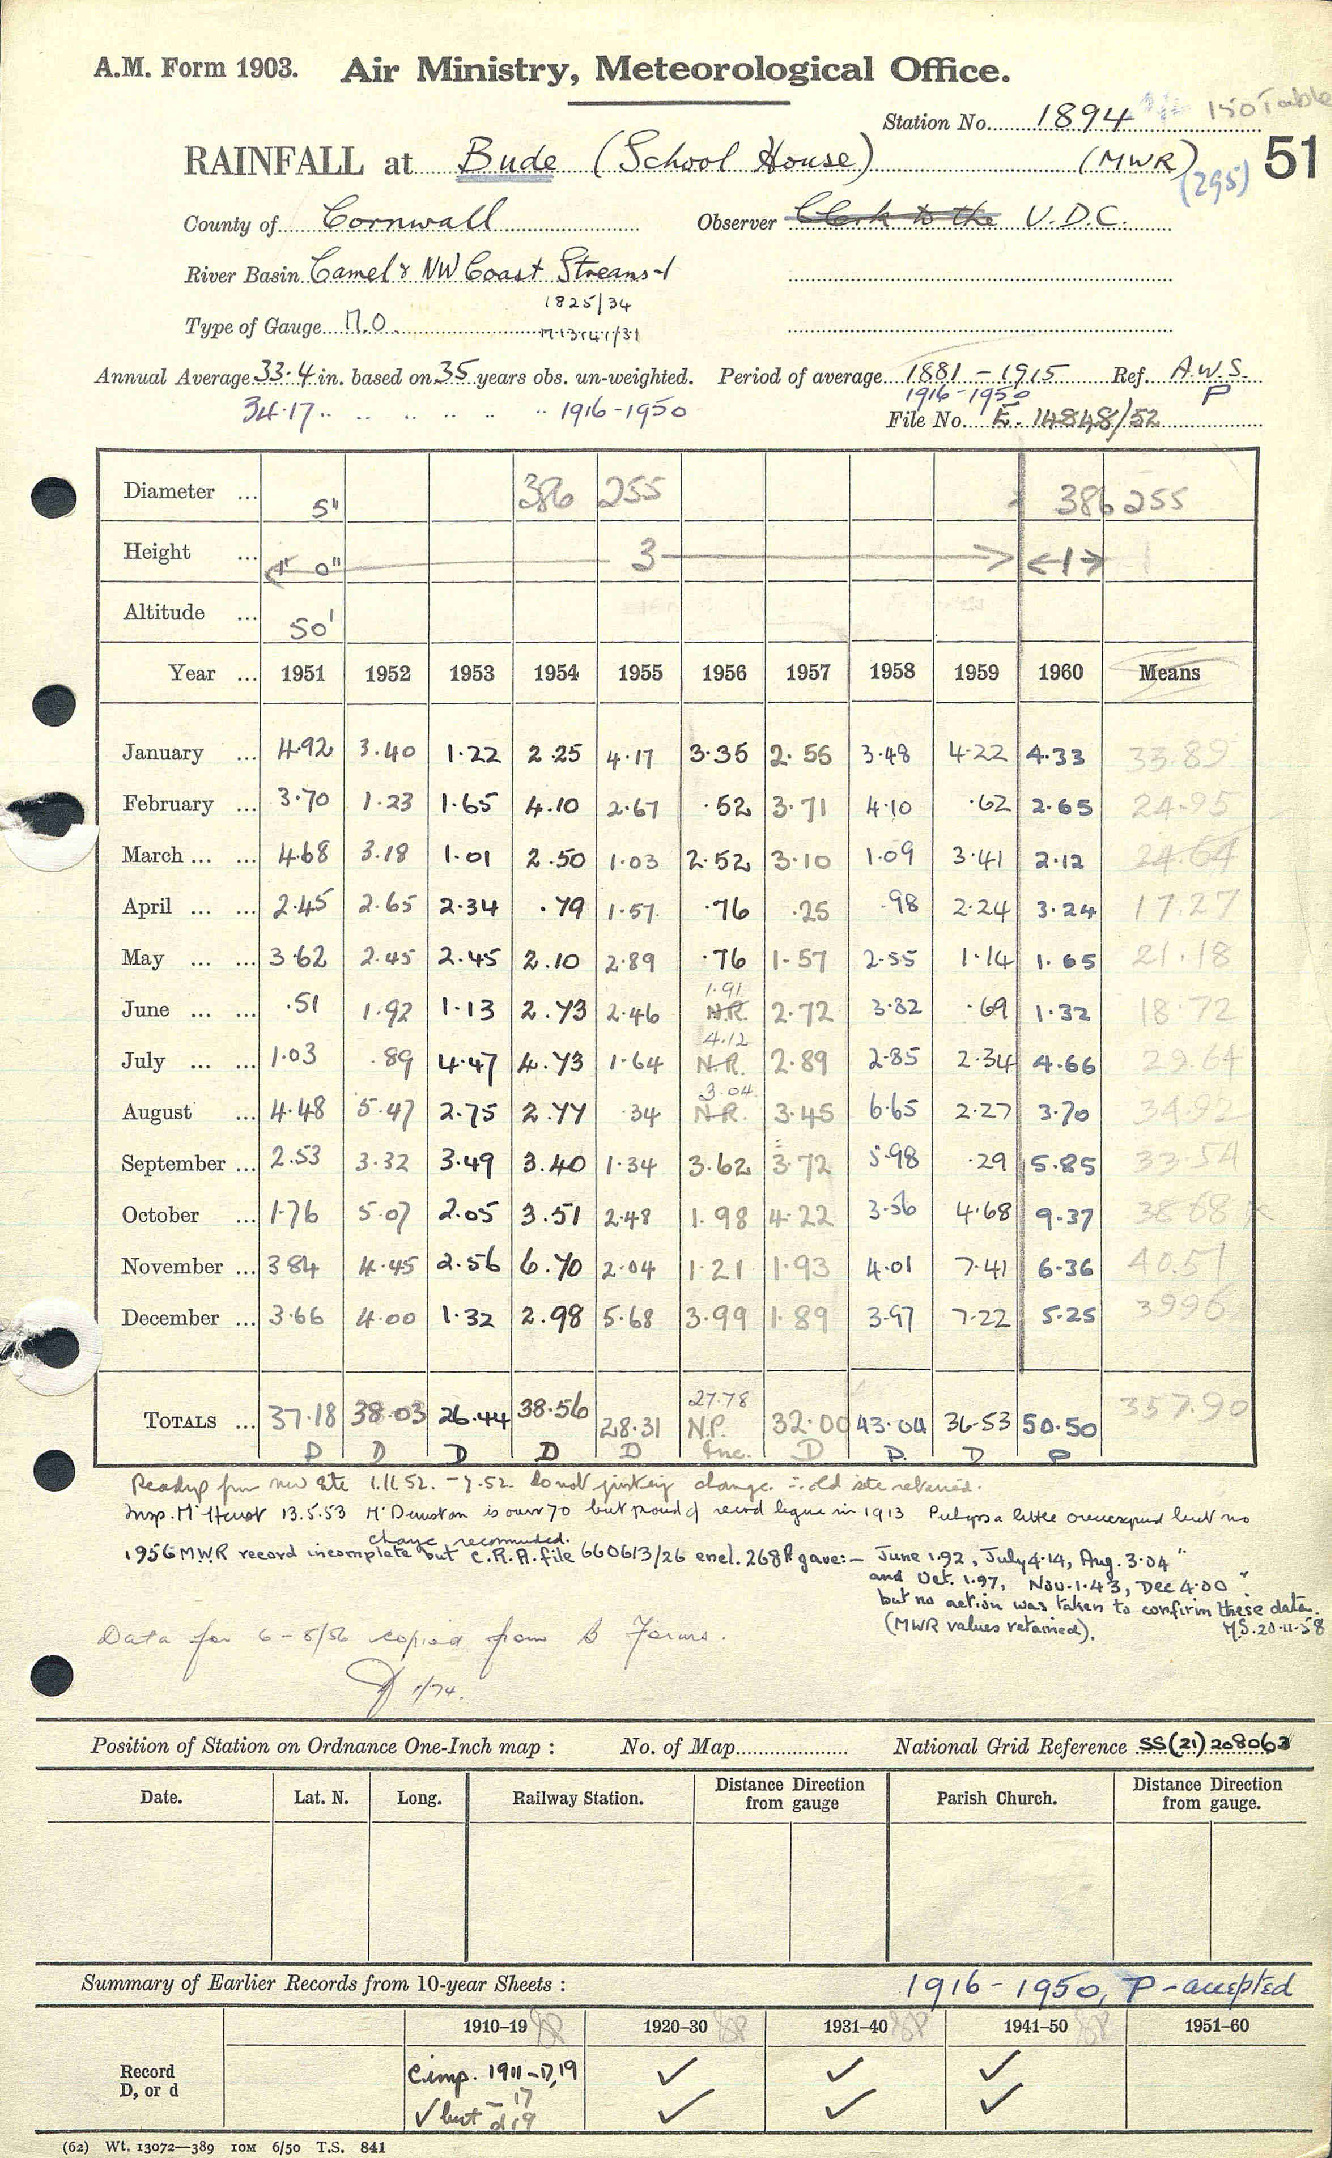 A.M. Form 1903. Air Ministry, Meteorological Office.
Station No. 1894 150 Table
RAINFALL at Bude (School House) (MWR) (295) 51
County of Cornwall Observer Clerk to the U.D.C.
River Basin Camel & NW Coast Streams
1825/34
Type of Gauge M.O.
Annual Average 33.4 in. based on 35 years obs. un-weighted. Period of average 1881 - 1915 Ref. A.W.S.
34.17 .. .. .. .. .. .. 1916-1950 1916-1950 P
File No. E. 14848/52
Diameter ... 5" 386 255 386 255
Height ... 1' 0" 3 1
Altitude ... 50'
Year ... 1951 1952 1953 1954 1955 1956 1957 1958 1959 1960 Means
January ... 4.92 3.40 1.22 2.25 4.17 3.35 2.56 3.48 4.22 4.33 33.89
February ... 3.70 1.23 1.65 4.10 2.67 .52 3.71 4.10 .62 2.65 24.95
March ... ... 4.68 3.18 1.01 2.50 1.03 2.52 3.10 1.09 3.41 2.12 24.64
April ... ... 2.45 2.65 2.34 .79 1.57 .76 .25 .98 2.24 3.24 17.27
May ... ... 3.62 2.45 2.45 2.10 2.89 .76 1.57 2.55 1.14 1.65 21.18
1.91
June ... ... .51 1.92 1.13 2.73 2.46 N.R. 2.72 3.82 .69 1.32 18.72
4.12
July ... ... 1.03 .89 4.47 4.73 1.64 N.R. 2.89 2.85 2.34 4.66 29.64
3.04
August ... 4.48 5.47 2.75 2.77 .34 N.R. 3.45 6.65 2.27 3.70 34.92
September ... 2.53 3.32 3.49 3.40 1.34 3.62 3.72 5.98 .29 5.85 33.54
October ... 1.76 5.07 2.05 3.51 2.48 1.98 4.22 3.56 4.68 9.37 38.68
November ... 3.84 4.45 2.56 6.70 2.04 1.21 1.93 4.01 7.41 6.36 40.51
December ... 3.66 4.00 1.32 2.98 5.68 3.99 1.89 3.97 7.22 5.25 39.96
27.78
TOTALS ... 37.18 38.03 26.44 38.56 28.31 N.P. 32.00 43.04 36.53 50.50 357.90
D D D D D Inc. D P. D P
new site 1.11.52. do not change old site retained.
Insp. 13.5.53 is over 70 but proud of record begun in 1913 Perhaps a little overexposed but no
change recommended.
1956 MWR record incomplete but C.R.A. file 660613/26 encl. 268 gave:- June 1.92, July 4.14, Aug. 3.04"
and Oct. 1.97, Nov. 1.43, Dec 4.00"
but no action was taken to confirm these data.
(MWR values retained). 20.11.58
Data for 6-8/56 copied from B Forms.
1/74.
Position of Station on Ordnance One-Inch map : No. of Map National Grid Reference SS(21)208063
Date. Lat. N. Long. Railway Station. Distance Direction from gauge Parish Church. Distance Direction from gauge.
Summary of Earlier Records from 10-year Sheets : 1916 - 1950, P - accepted
1910-19 1920-30 1931-40 1941-50 1951-60
Record D, or d
Comp. 1911 - D,19 ✓ ✓ ✓
✓ but - 17 d 19 ✓ ✓ ✓
(62) Wt. 13072—389 10M 6/50 T.S. 841